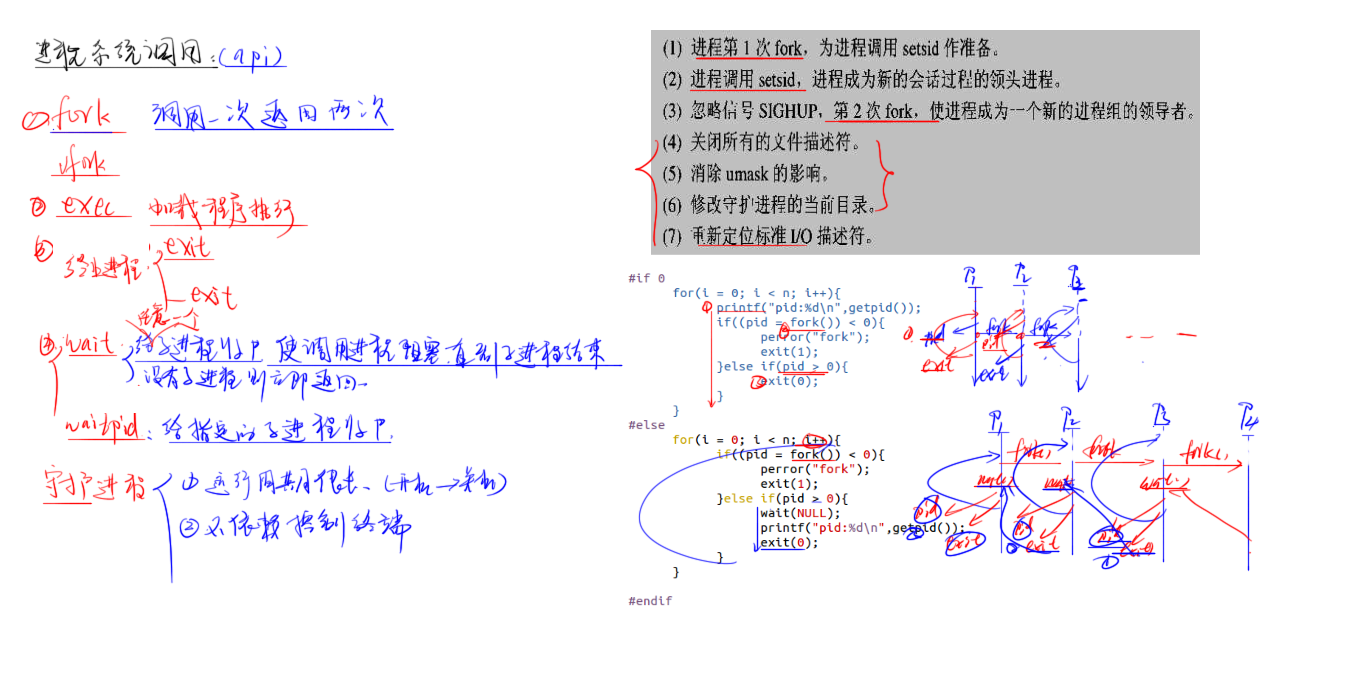 进程系统调用:(api)
①fork 调用一次返回两次
vfork
② exec 加载程序执行
③ 终止进程: exit
_exit
任意一个
④ wait: 给子进程收尸 使调用进程阻塞直到子进程结束
没有子进程则立即返回
waitpid: 给指定的子进程收尸.
守护进程 ① 运行周期很长、(开机→关机)
② 不依赖控制终端
(1) 进程第 1 次 fork，为进程调用 setsid 作准备。
(2) 进程调用 setsid，进程成为新的会话过程的领头进程。
(3) 忽略信号 SIGHUP，第 2 次 fork，使进程成为一个新的进程组的领导者。
(4) 关闭所有的文件描述符。
(5) 消除 umask 的影响。
(6) 修改守护进程的当前目录。
(7) 重新定位标准 I/O 描述符。
#if 0
for(i = 0; i < n; i++){
printf("pid:%d\n",getpid());
if((pid = fork()) < 0){
perror("fork");
exit(1);
}else if(pid > 0){
exit(0);
}
}
#else
for(i = 0; i < n; i++){
if((pid = fork()) < 0){
perror("fork");
exit(1);
}else if(pid > 0){
wait(NULL);
printf("pid:%d\n",getpid());
exit(0);
}
}
#endif
P1 P2 P3
fork fork
pid
exit exit
P1 P2 P3 P4
fork fork fork
wait wait wait
pid pid pid
exit exit exit